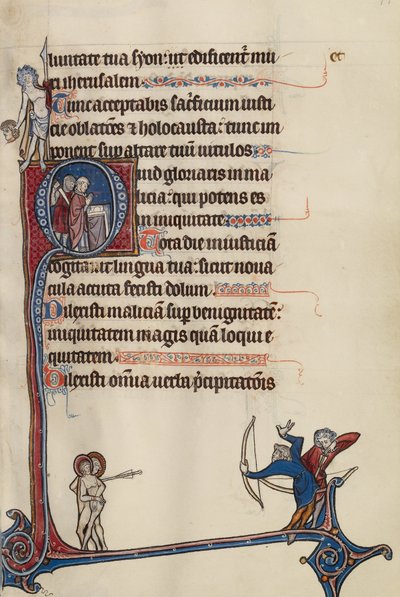 luntate tua syon: ut edificent᷑ mu
ri iherusalem.
Tunc acceptabis sac᷑ficium iusti
cie oblatões & holocausta: tunc im
ponent suꝑ altare tuū uitulos
Quid gloriaris in ma
licia: qui potens es
in iniquitate
Tota die iniusticiā
cogitauit lingua tua: sicut noua
cula accuta fecisti dolum.
Dilexisti maliciam suꝑ benignitatē:
iniquitatem magis quā loqui e
quitatem.
Dilexisti omnia uerba p̄cipitatiōis